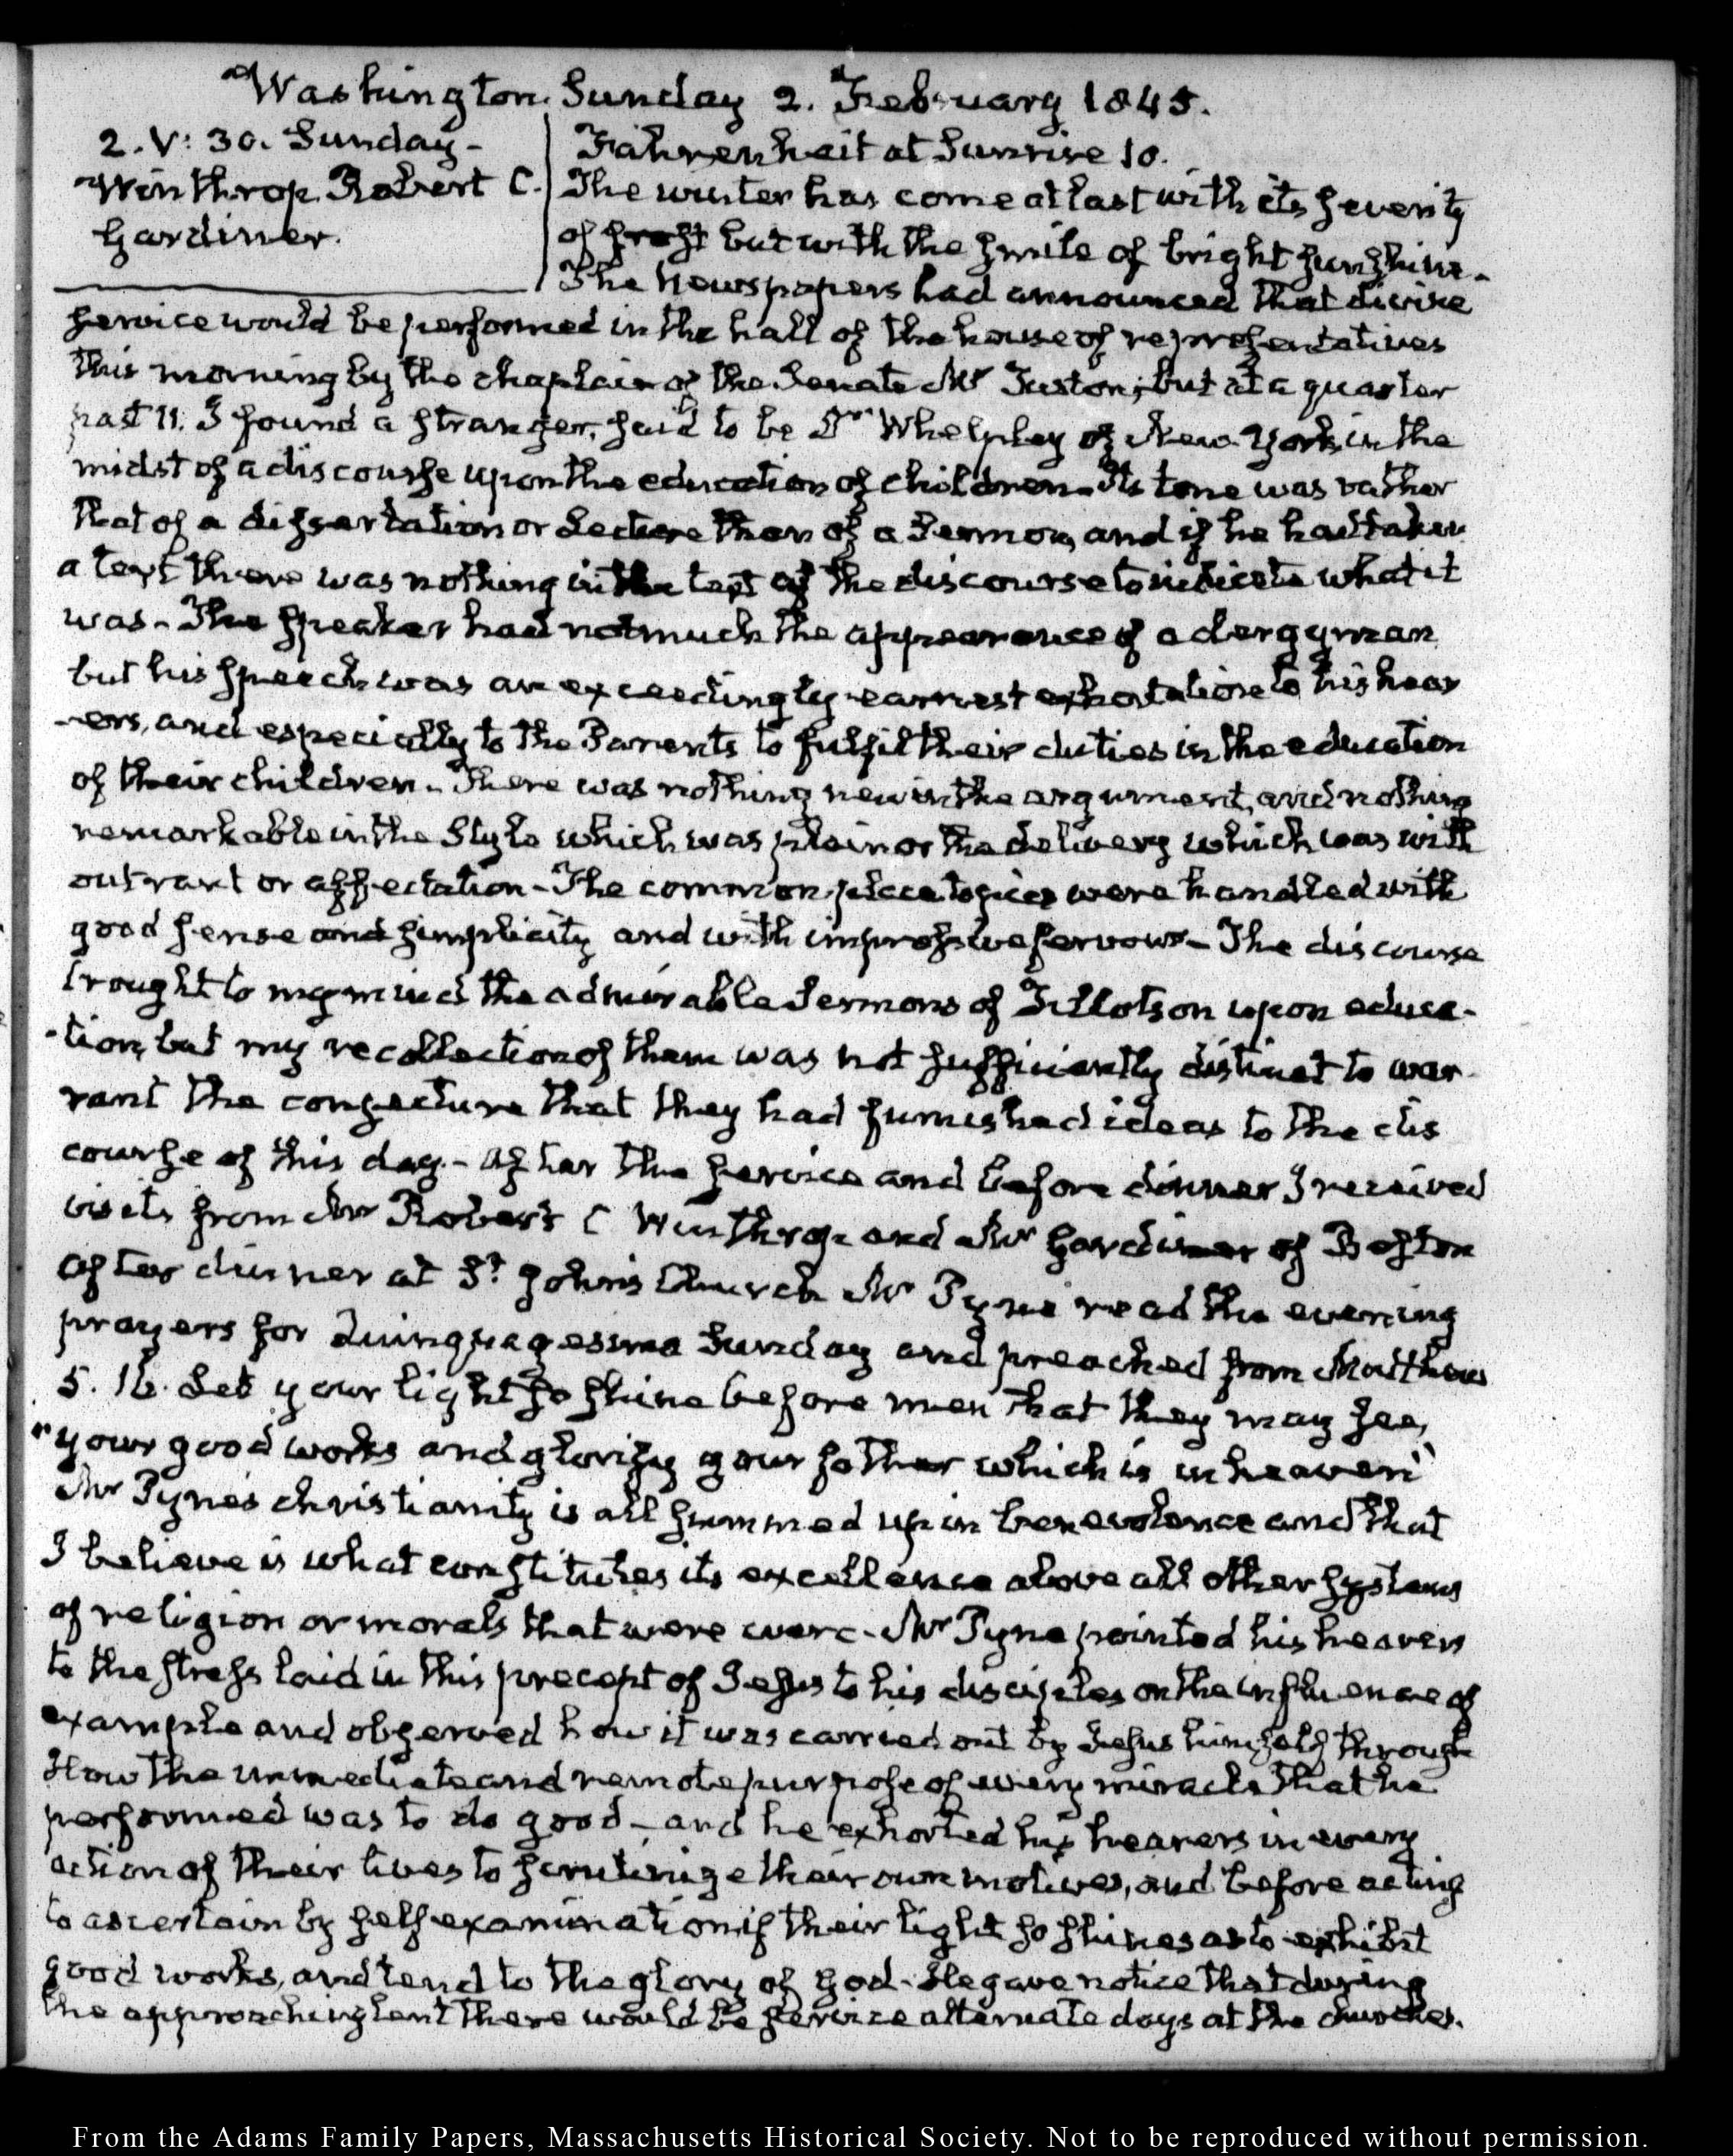 Washington. Sunday 2. February 1845.
2. V: 30. Sunday-
Winthrop. Robert C.
Gardiner.
Fahrenheit at Sunrise 10.
The winter has come at last with its severity
of frost but with the smile of bright sunshine-
The Newspapers had announced that divine
service would be performed in the hall of the house of representatives
this morning by the chaplain of the Senate Mr Tuston; but at a quarter
past 11. I found a stranger, said to be Dr Whelpley of New-York, in the
midst of a discourse upon the education of children- Its tone was rather
that of a dissertation or Lecture than of a Sermon, and if he had taken
a text there was nothing in the text of the discourse to indicate what it
was- The speaker had not much the appearance of a clergyman
but his speech was an exceedingly earnest exhortation to his hear
-ers, and especially to the Parents to fulfil their duties in the education
of their children- There was nothing new in the argument, and nothing
remarkable in the Style which was plain or the delivery which was with
out rant or affectation- The common place topics were handled with
good sense and simplicity and with impressive fervour- The discourse
brought to my mind the admirable Sermons of Tillotson upon educa-
-tion, but my recollection of them was not sufficiently distinct to war-
rant the conjecture that they had furnished ideas to the dis
course of this day- After the service and before dinner I received
visits from Mr Robert C Winthrop and Mr Gardiner of Boston
After dinner at St John's Church Mr Pyne read the evening
prayers for Quinquagesima Sunday and preached from Matthew
5. 16. Let your light so shine before men that they may see,
"your good works and glorify your father which is in heaven"
Mr Pyne's christianity is all summed up in benevolence and that
I believe is what constitutes its excellence above all other systems
of religion or morals that were ever- Mr Pyne pointed his hearers
to the stress laid in this precept of Jesus to his disciples on the influence of
example and observed how it was carried out by Jesus himself through
How the immediate and remote purpose of every miracle that he
performed was to do good- and he exhorted his hearers in every
action of their lives to scrutinize their own motives, and before acting
to ascertain by self examination, if their light so shines as to exhibit
good works, and tend to the glory of God- He gave notice that during
the approaching lent there would be service alternate days at the churches.
From the Adams Family Papers, Massachusetts Historical Society. Not to be reproduced without permission.